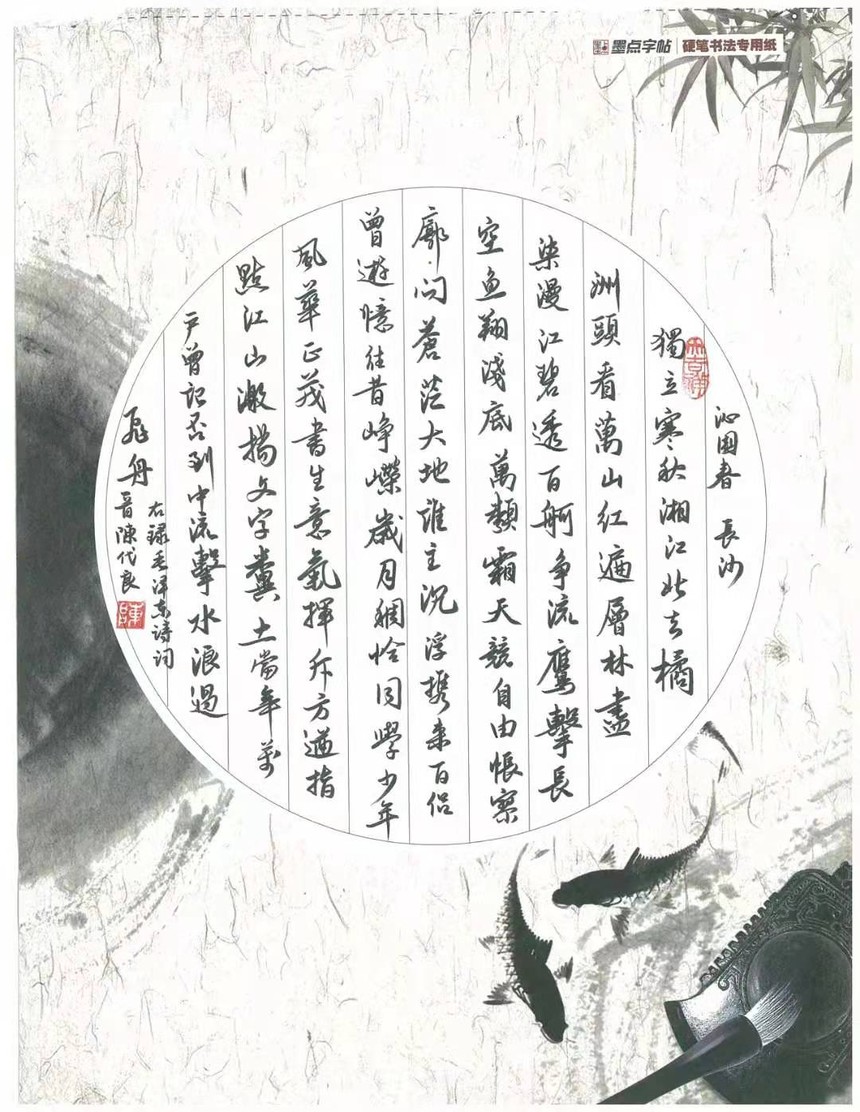 墨点字帖 硬笔书法专用纸
沁園春 長沙
獨立寒秋湘江北去橘
洲頭看萬山红遍層林盡
染漫江碧透百舸争流鷹擊長
空鱼翔淺底萬類霜天競自由悵寥
廓問蒼茫大地誰主沉浮携来百侣
曾遊憶往昔崢嶸歲月稠恰同學少年
風華正茂書生意氣揮斥方遒指
點江山激揚文字糞土當年萬
户曾记否到中流擊水浪遏
飛舟
右録毛泽东诗词
晋陳代良